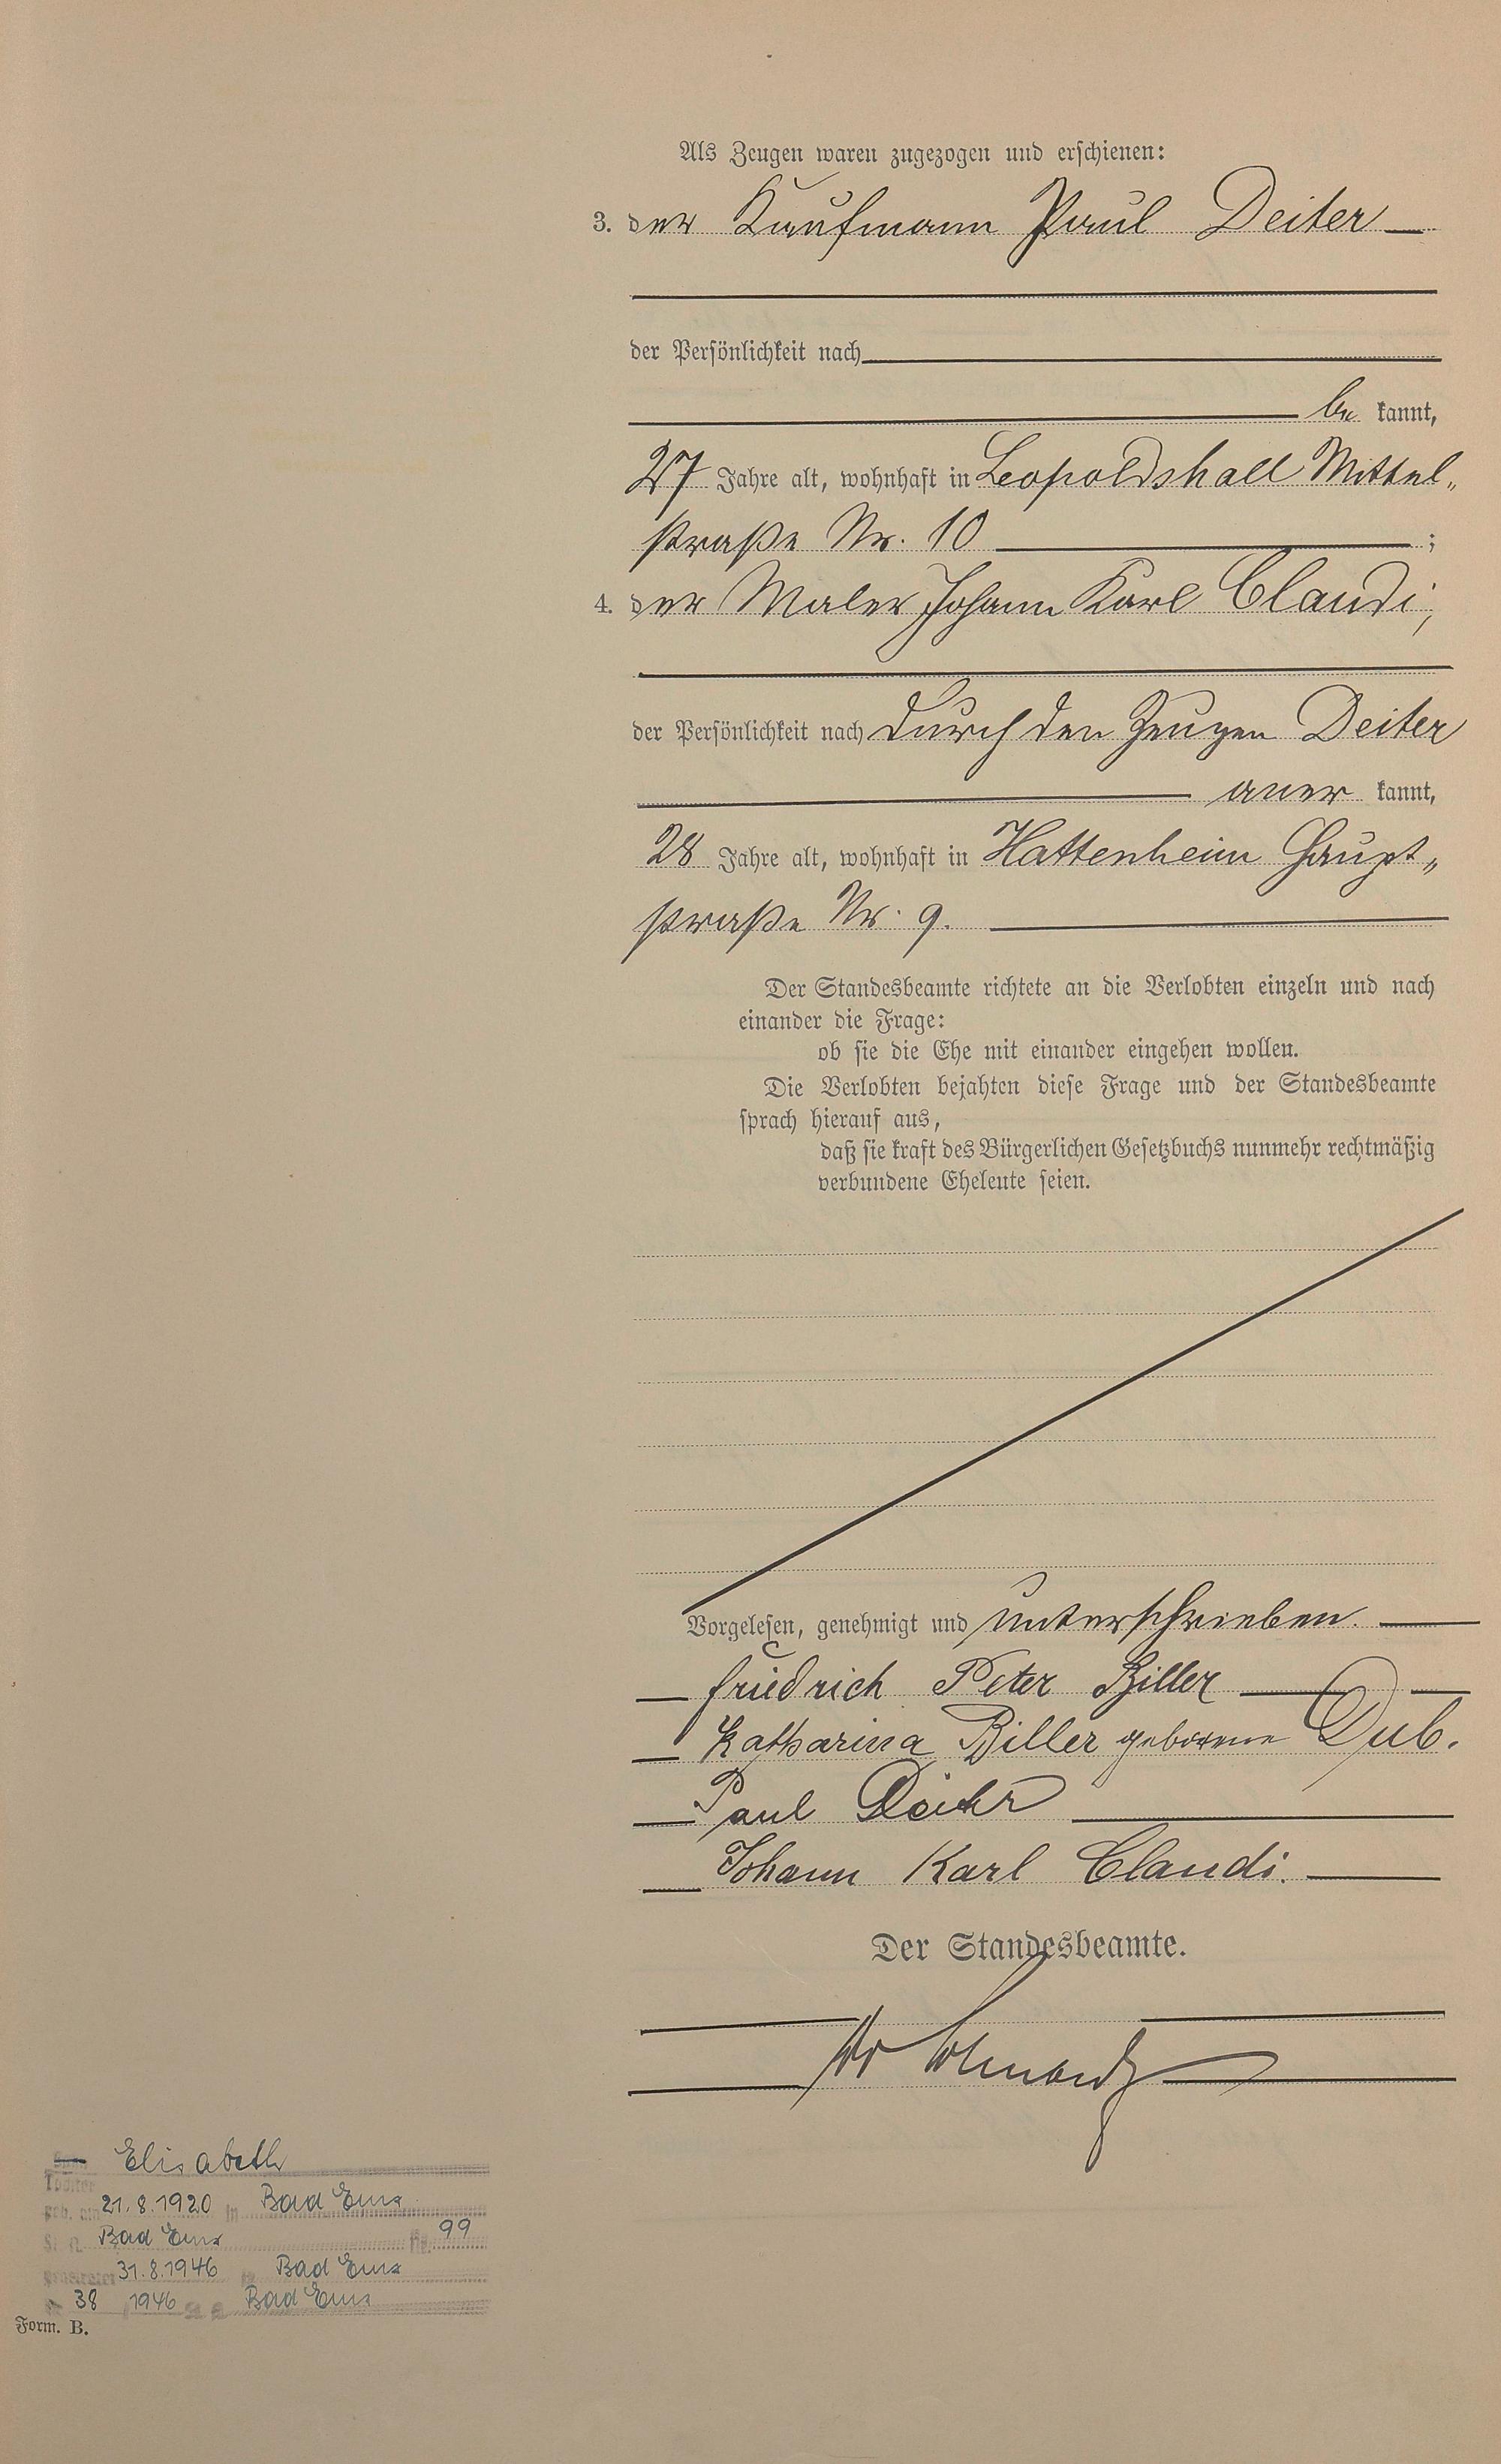 Als Zeugen waren zugezogen und erschienen:
3. der Kaufmann Paul Deiter
der Persönlichkeit nach
be kannt,
27 Jahre alt, wohnhaft in Leopoldshall Mittel„
straße Nr. 10 ;
4. der Maler Johann Karl Claudi,
der Persönlichkeit nach durch den Zeugen Deiter
aner kannt,
28 Jahre alt, wohnhaft in Hattenheim Haupt„
straße Nr. 9.
Der Standesbeamte richtete an die Verlobten einzeln und nach
einander die Frage:
ob sie die Ehe mit einander eingehen wollen.
Die Verlobten bejahten diese Frage und der Standesbeamte
sprach hierauf aus,
daß sie kraft des Bürgerlichen Gesetzbuchs nunmehr rechtmäßig
verbundene Eheleute seien.
Vorgelesen, genehmigt und unterschrieben.
Friedrich Peter Biller
Katharina Biller geborene Dub.
Paul Deiter
Johann Karl Claudi.
Der Standesbeamte.
Elisabeth
Tochter
geb. am 21.8.1920 in Bad Ems
St. A. Bad Ems Nr. 99
geheiratet 31.8.1946 in Bad Ems
38 1946 Bad Ems
Form. B.